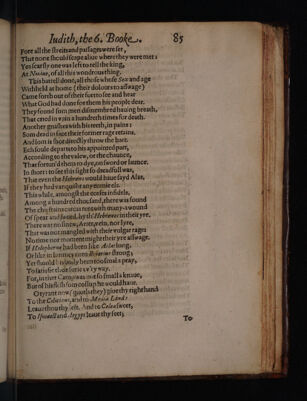 Iudith, the 6. Booke. 85
For all the streits and passages were set,
That none should scape aliue where they were met:
Yet scarsly one was left to tell the king,
At Niniue, of all this wondrous thing.
This battell done, all those whose Sex and age
Withheld at home (their dolours to asswage)
Came forth out of their fort to see and hear
What God had done for them his people dear.
They found som men dismembred hauing breath,
That cryed in vain a hundreth times for death.
Another gnashes with his teeth, in pain:
Som dead in face their former rage retains.
And som is shot directly throw the hart.
Ech soule departs to his appointed part,
According to the valew, or the chaunce,
That fortun'd them to dye, on sword or launce.
In short: to see this sight so dreadfull was,
That euen the Hebrews would haue sayd Alas,
If they had vanquist any enmie els.
This while, amongst the corses
Among a hundreth thousand, there was found
The chiftains carcas rent with many a wound
Of spear and sword, by th' Hebrewes in their yre.
There was no sinew, Arter, vein, nor lyre,
That was not mangled with their vulgar rage:
No time nor moment might their yre asswage.
If Holopherne had been like Atlas long,
Or like in limmes to Briarius strong,
Yet should his body been too small a pray,
To satisfie their furie euery way.
For, in that Camp was not so small a knaue,
But of his flesh som collup he would haue.
O tyrant now (quoth they) giue thy right hand
To the Cilicians, and to Media Land:
Leaue thou thy left. And to Celea sweet,
To Ismaell and Aegypt leaue thy feet;
To